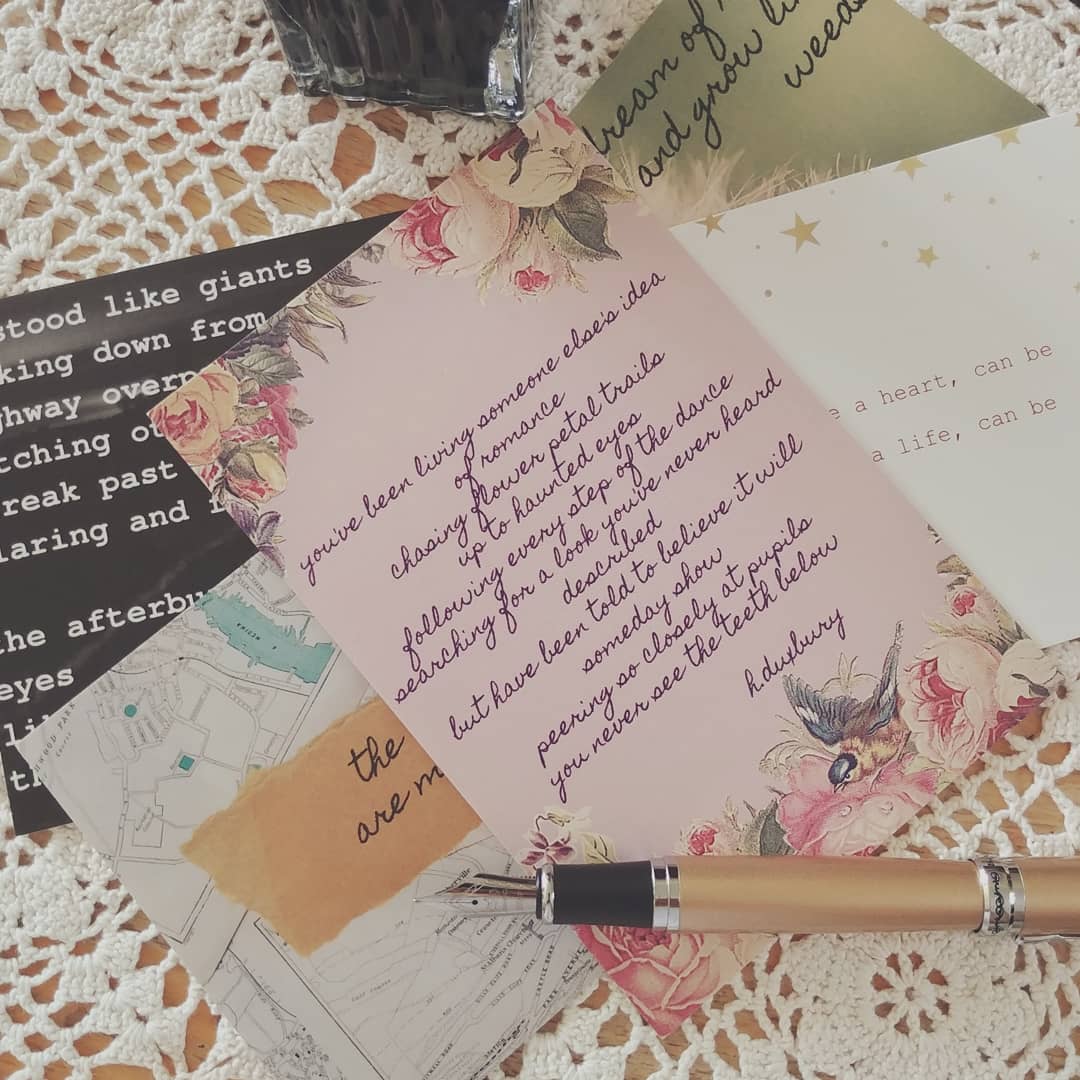 dream of
and grow li
weeds
stood like giants
king down from
ghway overp
tching ou
reak past
laring and
the afterbu
eyes
li
th
you've been living someone else's idea
of romance
chasing flower petal trails
up to haunted eyes
following every step of the dance
searching for a look you've never heard
described
but have been told to believe it will
someday show
peering so closely at pupils
you never see the teeth below
h.duxbury
e a heart, can be
a life, can be
the
are m